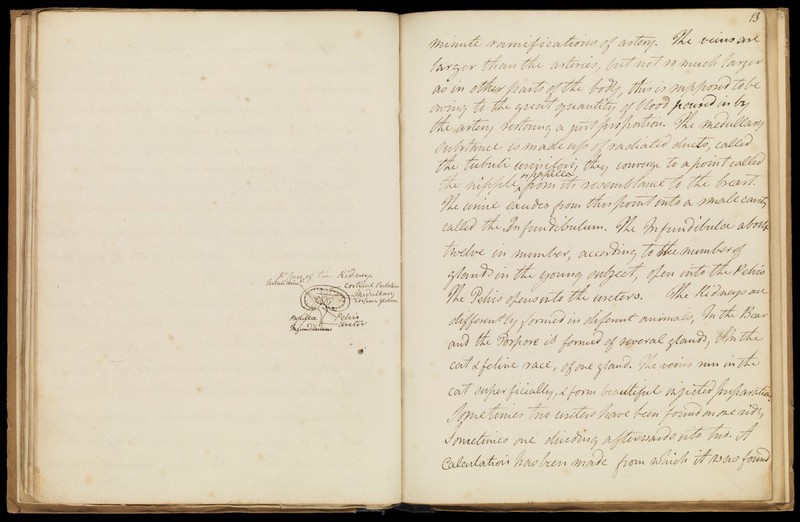 Plan of the Kidney
Tubuli Uriniferi
cortical Substance
Medullary
Papilla
Pelvis
Infundibulum
Ureter
13
minute ramifications of artery. The veins are
larger than the arteries, but not so much larger
as in other parts of the body, this is supposed to be
owing to the great quantity of blood poured in by
the artery restoring a just proportion. The medullary
substance is made up of radiated ducts, called
the tubuli uriniferi; they converge to a point called
or papilla
the nipple ^ from its resemblance to the breast.
The urine exudes from this point into a small cavity
called the Infundibulum. The Infundibulae about
twelve in number, according to the number of
glands in the young subject, open into the Pelvis
The Pelvis opens into the ureters. The Kidneys are
differently formed in different animals, In the Bear
and the Porpore is formed of several glands, In the
cat & feline race, of one gland. The veins run in the
cat superficially, & form beautiful injected preparations
Sometimes two ureters have been found on one side,
Sometimes one dividing afterwards into two. A
Calculation has been made from which it was found